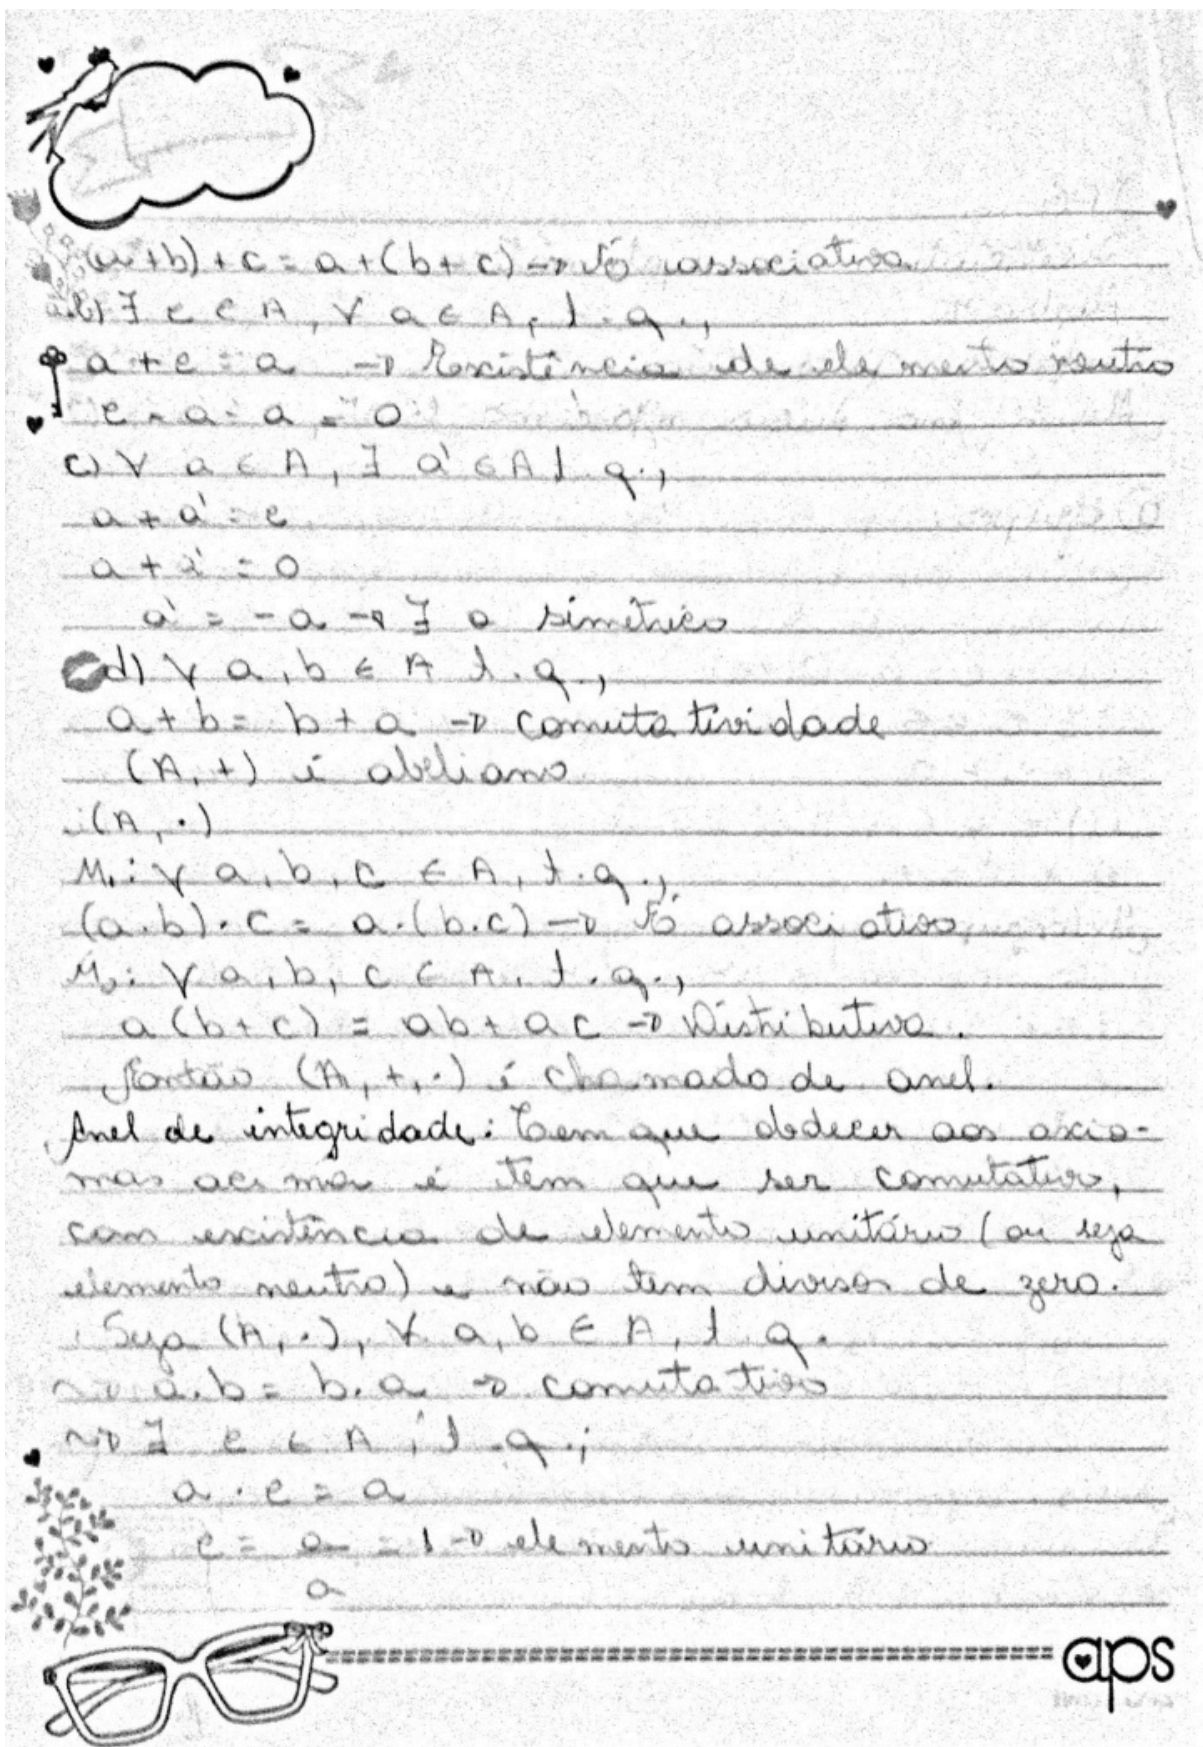 (a+b)+c = a+(b+c) → É associativa
b) ∃ e ∈ A, ∀ a ∈ A, t.q.,
a+e = a → Existência de elemento neutro
e = a - a = 0
c) ∀ a ∈ A, ∃ a' ∈ A t.q.,
a + a' = e
a + a' = 0
a' = -a → ∃ o simétrico
d) ∀ a, b ∈ A t.q.,
a + b = b + a → comutatividade
(A, +) é abeliano
(A, ·)
M₁: ∀ a, b, c ∈ A, t.q.,
(a·b)·c = a·(b·c) → É associativo
M₂: ∀ a, b, c ∈ A, t.q.,
a(b+c) = ab + ac → Distributiva.
Então (A, +, ·) é chamado de anel.
Anel de integridade: Tem que obdecer aos axio-
mas acima é tem que ser comutativo,
com existência de elemento unitário (ou seja
elemento neutro) e não tem divisor de zero.
Seja (A, ·), ∀ a, b ∈ A, t.q.
~> a·b = b·a → comutativo
~> ∃ e ∈ A, t.q.,
a · e = a
e = a/a = 1 → elemento unitário
aps